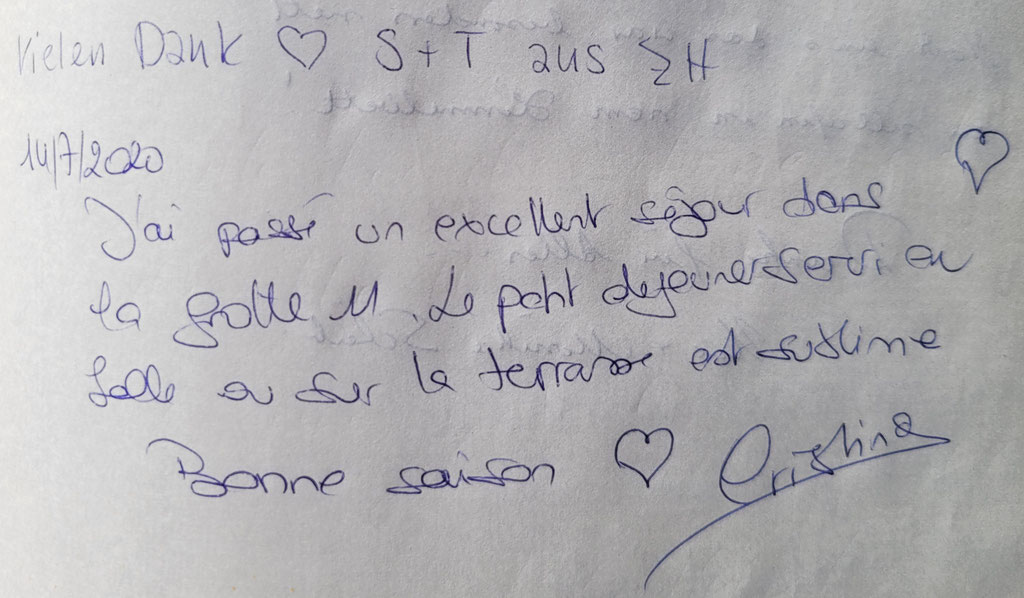 Vielen Dank ♡ S + T aus ZH
14/7/2020
J'ai passé un excellent séjour dans ♡
la grotte 11. Le petit dejeuner servi en
salle ou sur la terrasse est sublime
Bonne saison ♡ Cristina